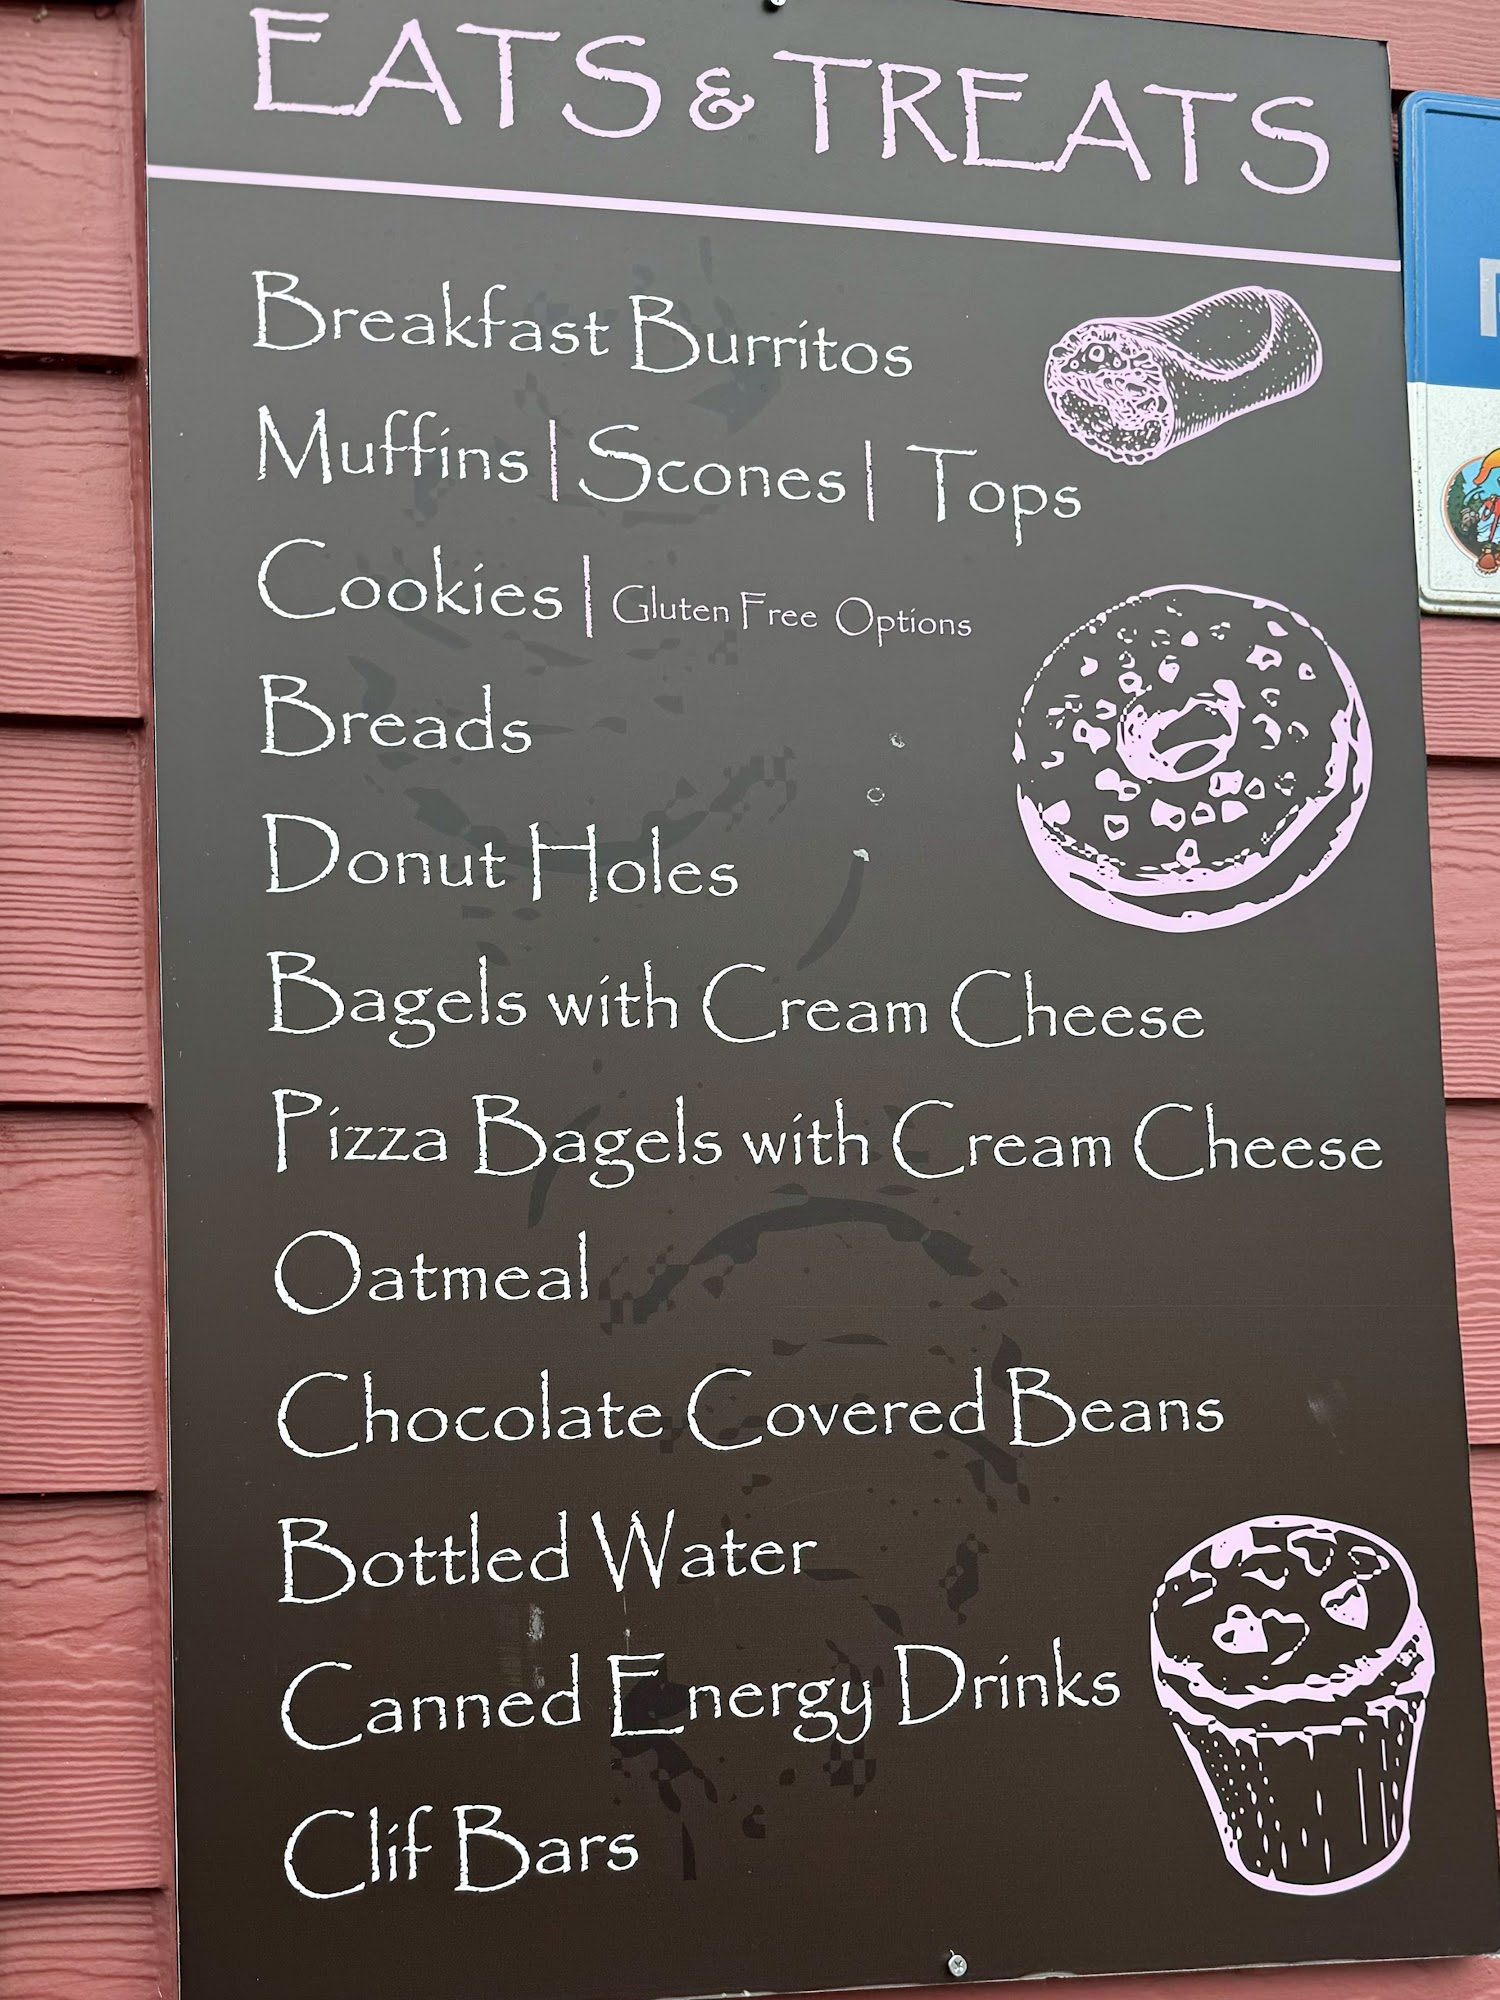 EATS & TREATS
Breakfast Burritos
Muffins | Scones | Tops
Cookies | Gluten Free Options
Breads
Donut Holes
Bagels with Cream Cheese
Pizza Bagels with Cream Cheese
Oatmeal
Chocolate Covered Beans
Bottled Water
Canned Energy Drinks
Clif Bars